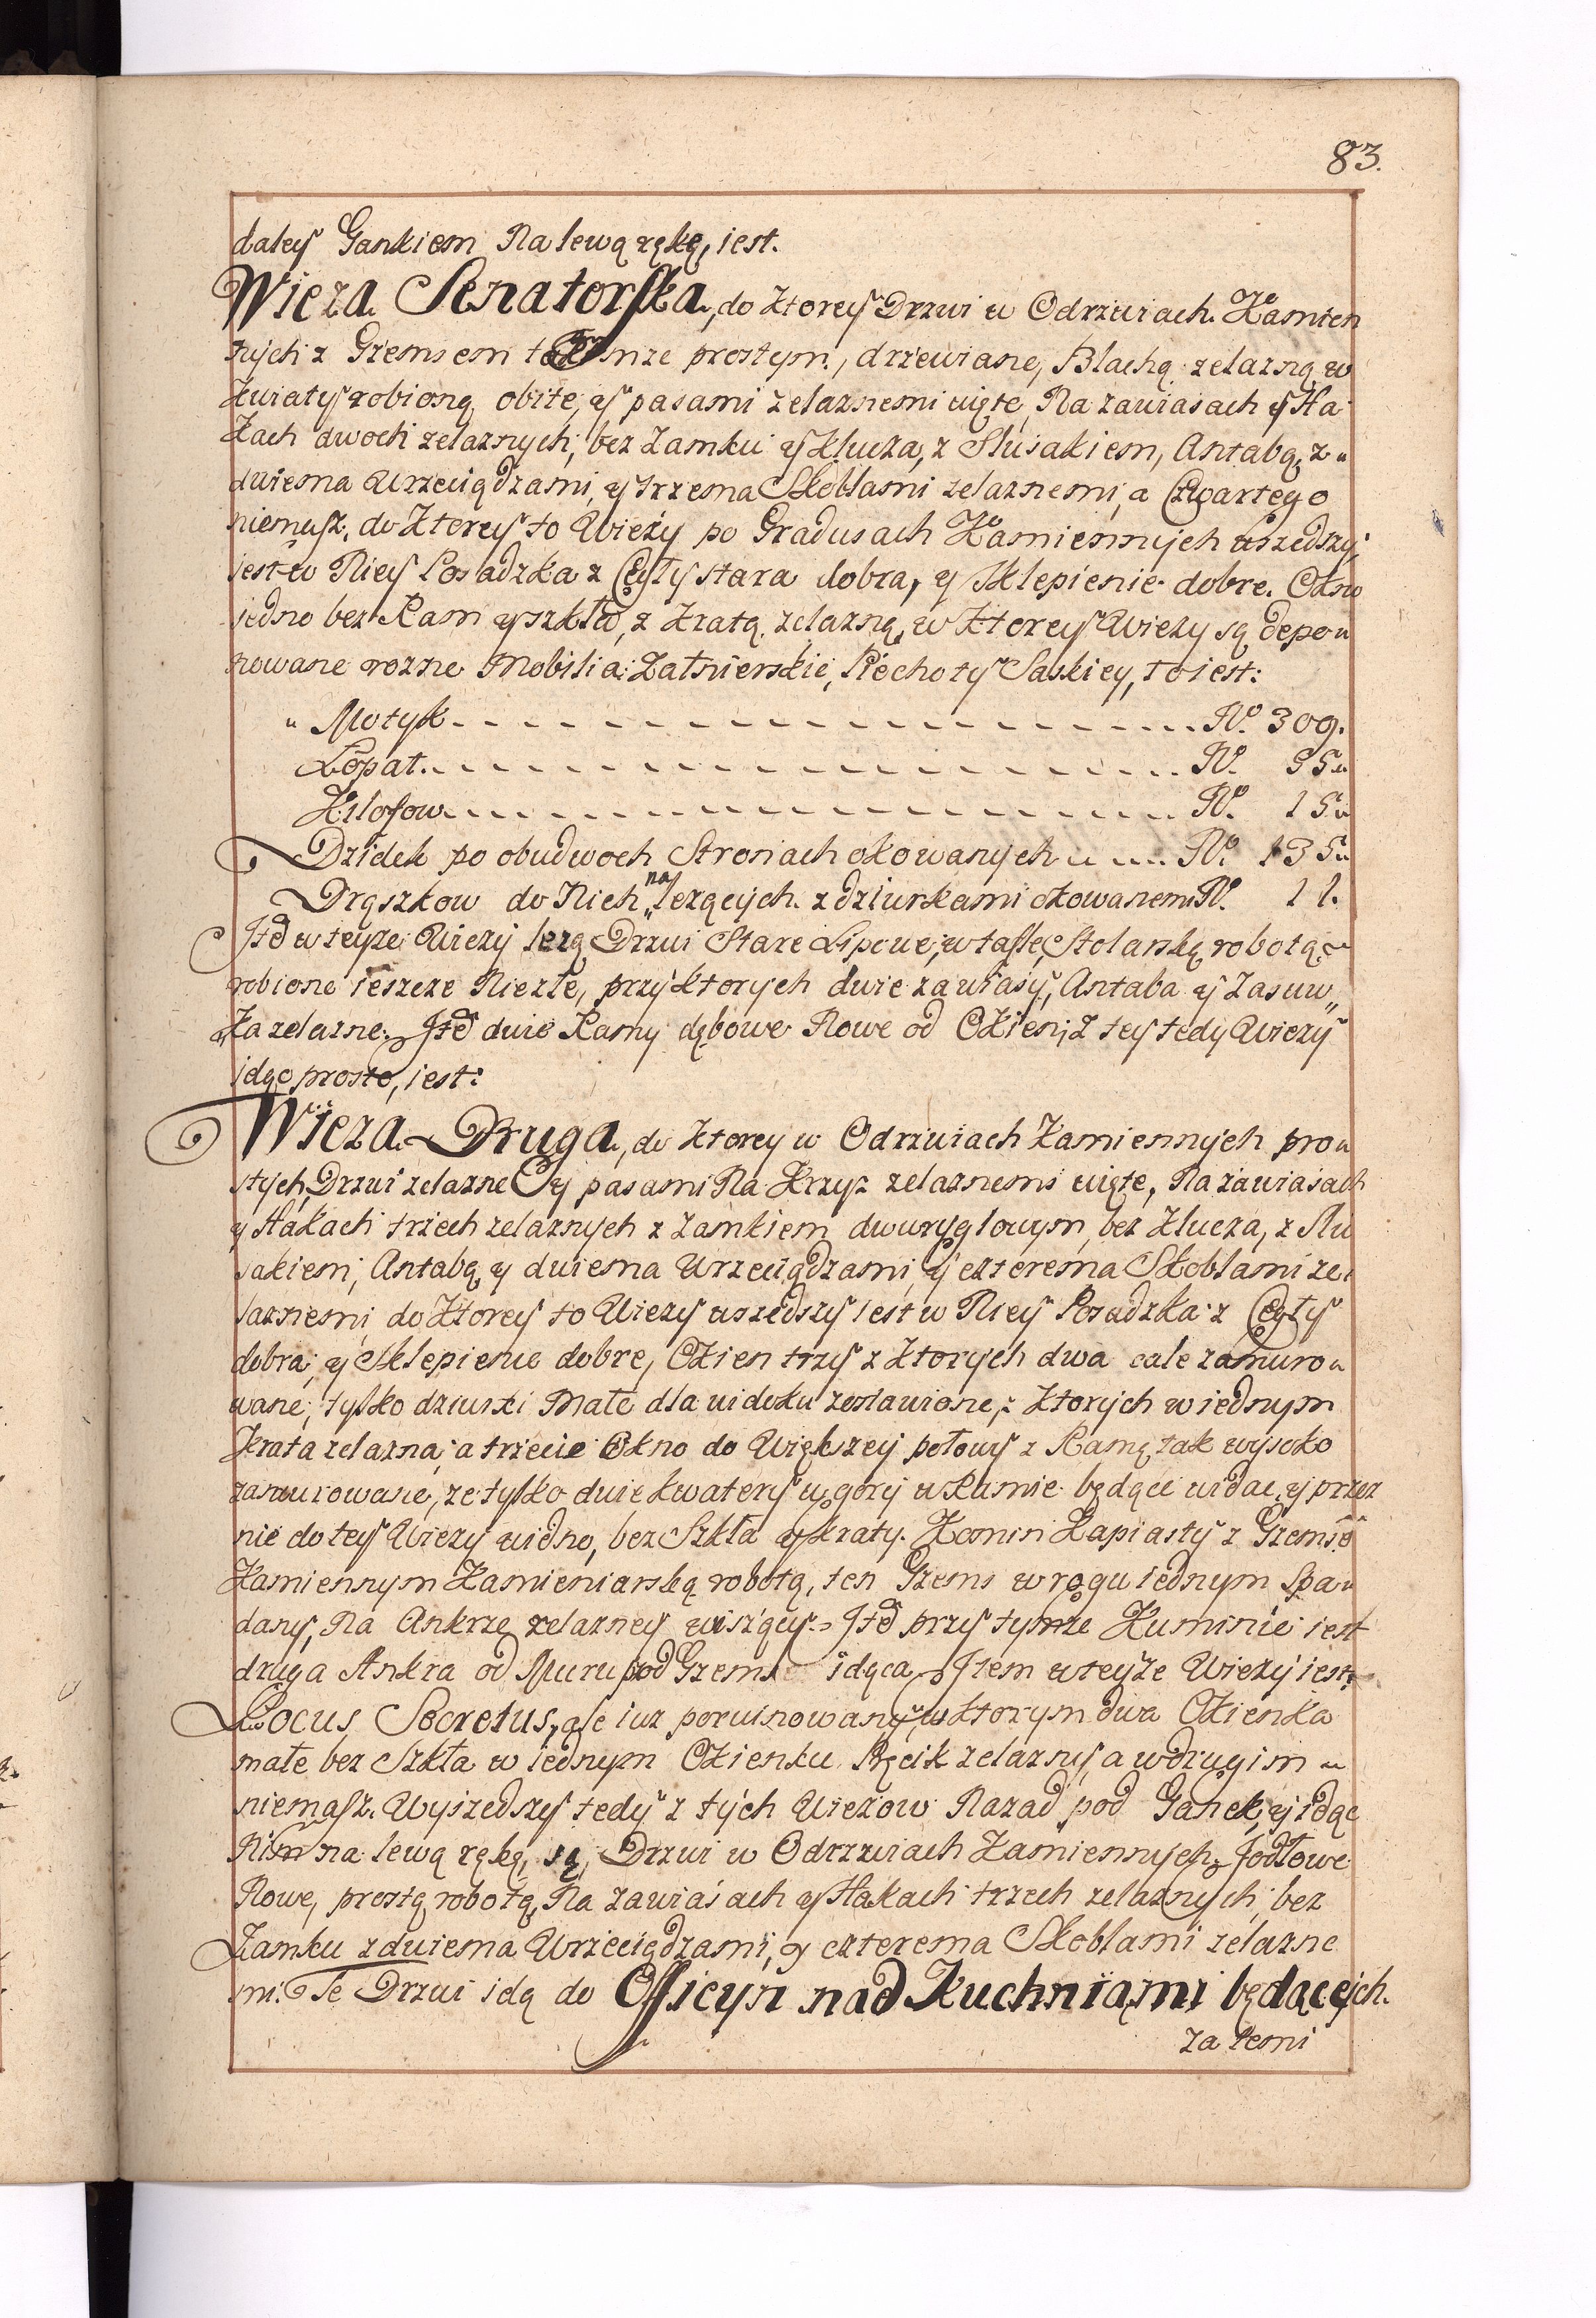 83.
daley Gankiem Na lewą rękę, iest.
Wieza Senatorska, do ktorey Drzwi w Odrzwiach Kamien
nych z Gzemsem takimze prostym, drzewiane, Blachą zelazną w
kwiaty robioną obite, y pasami zelaznemi więte, Na zawiasach y Ha
kach dwoch zelaznych, bez Zamku y Klucza, z Slusakiem, Antabą, z
dwiema Wrzeciądzami, y trzema Skoblami zelaznemi, a Czwartego
niemasz, do ktorey to Wiezy po Gradusach Kamiennych wszedszy,
iest w Niey Posadzka z Cegły stara dobra, y Sklepienie dobre. Okno
iedno bez Ram y szkła, z kratą zelazną, w ktorey Wiezy są depo
nowane rozne Mobilia Załnierskie, Piechoty Saskiey, to iest:
Motyk - - - No. 309.
Łopat - - - No. 95
Kilofow - - - No. 15
Dzidek po obudwoch Stronach okowanych - - No. 135
Drążkow do Nich na lezących z dziurkami okowanemi No. 11.
Itd w teyze Wiezy lezą Drzwi Stare Lipowe, w tafle, Stolarską robotą
robione ieszcze Niezłe, przy ktorych dwie zawiasy, Antaba y Zasuw
ka zelazne. Itd dwie Ramy dębowe Nowe od Okien, z tey tedy Wiezy
idąc prosto, iest:
Wieza Druga, do ktorey w Odrzwiach Kamiennych pro
stych, Drzwi zelazne y pasami Na Krzyz zelaznemi więte, Na zawiasach
y Hakach trzech zelaznych z zamkiem dwuryglowym, bez klucza, z Slu
sakiem, Antabą y dwiema Wrzeciądzami, y czterema Skoblami ze
laznemi, do ktorey to Wiezy wszedszy iest w Niey Posadzka z Cegły
dobra, y Sklepienie dobre, Okien trzy z ktorych dwa cale zamuro
wane, tylko dziurki Małe dla widoku zostawione, z ktorych w iednym
krata zelazna, a trzecie Okno do Większey połowy z Ramą tak wysoko
zamurowane, ze tylko dwie kwatery w gory w Ramie będące widac, y przez
nie do tey Wiezy widno, bez Szkła y kraty. Komin Kapiasty z Gzemsē
Kamiennym Kamieniarską robotą, ten Gzems w rogu iednym Spa
dany, Na Ankrze zelazney wiszący. Itd przy tymze Kuminie iest
druga Ankra od Muru pod Gzems idąca. Item w teyze Wiezy iest
Locus Secretus, ale iuz poruinowany, w ktorym dwa Okienka
małe bez Szkła w iednym Okienku Pręcik zelazny, a w drugim
niemasz. Wyszedszy tedy z tych Wiezow Nazad pod Ganek, y idąc
Nim na lewą rękę, są Drzwi w Odrzwiach Kamiennych Jodłowe
Nowe, prostą robotą, Na zawiasach y Hakach trzech zelaznych, bez
Zamku z dwiema Wrzeciądzami, y czterema Skoblami zelazne
mi. Te Drzwi idą do Officyn nad Kuchniami będących.
Za temi